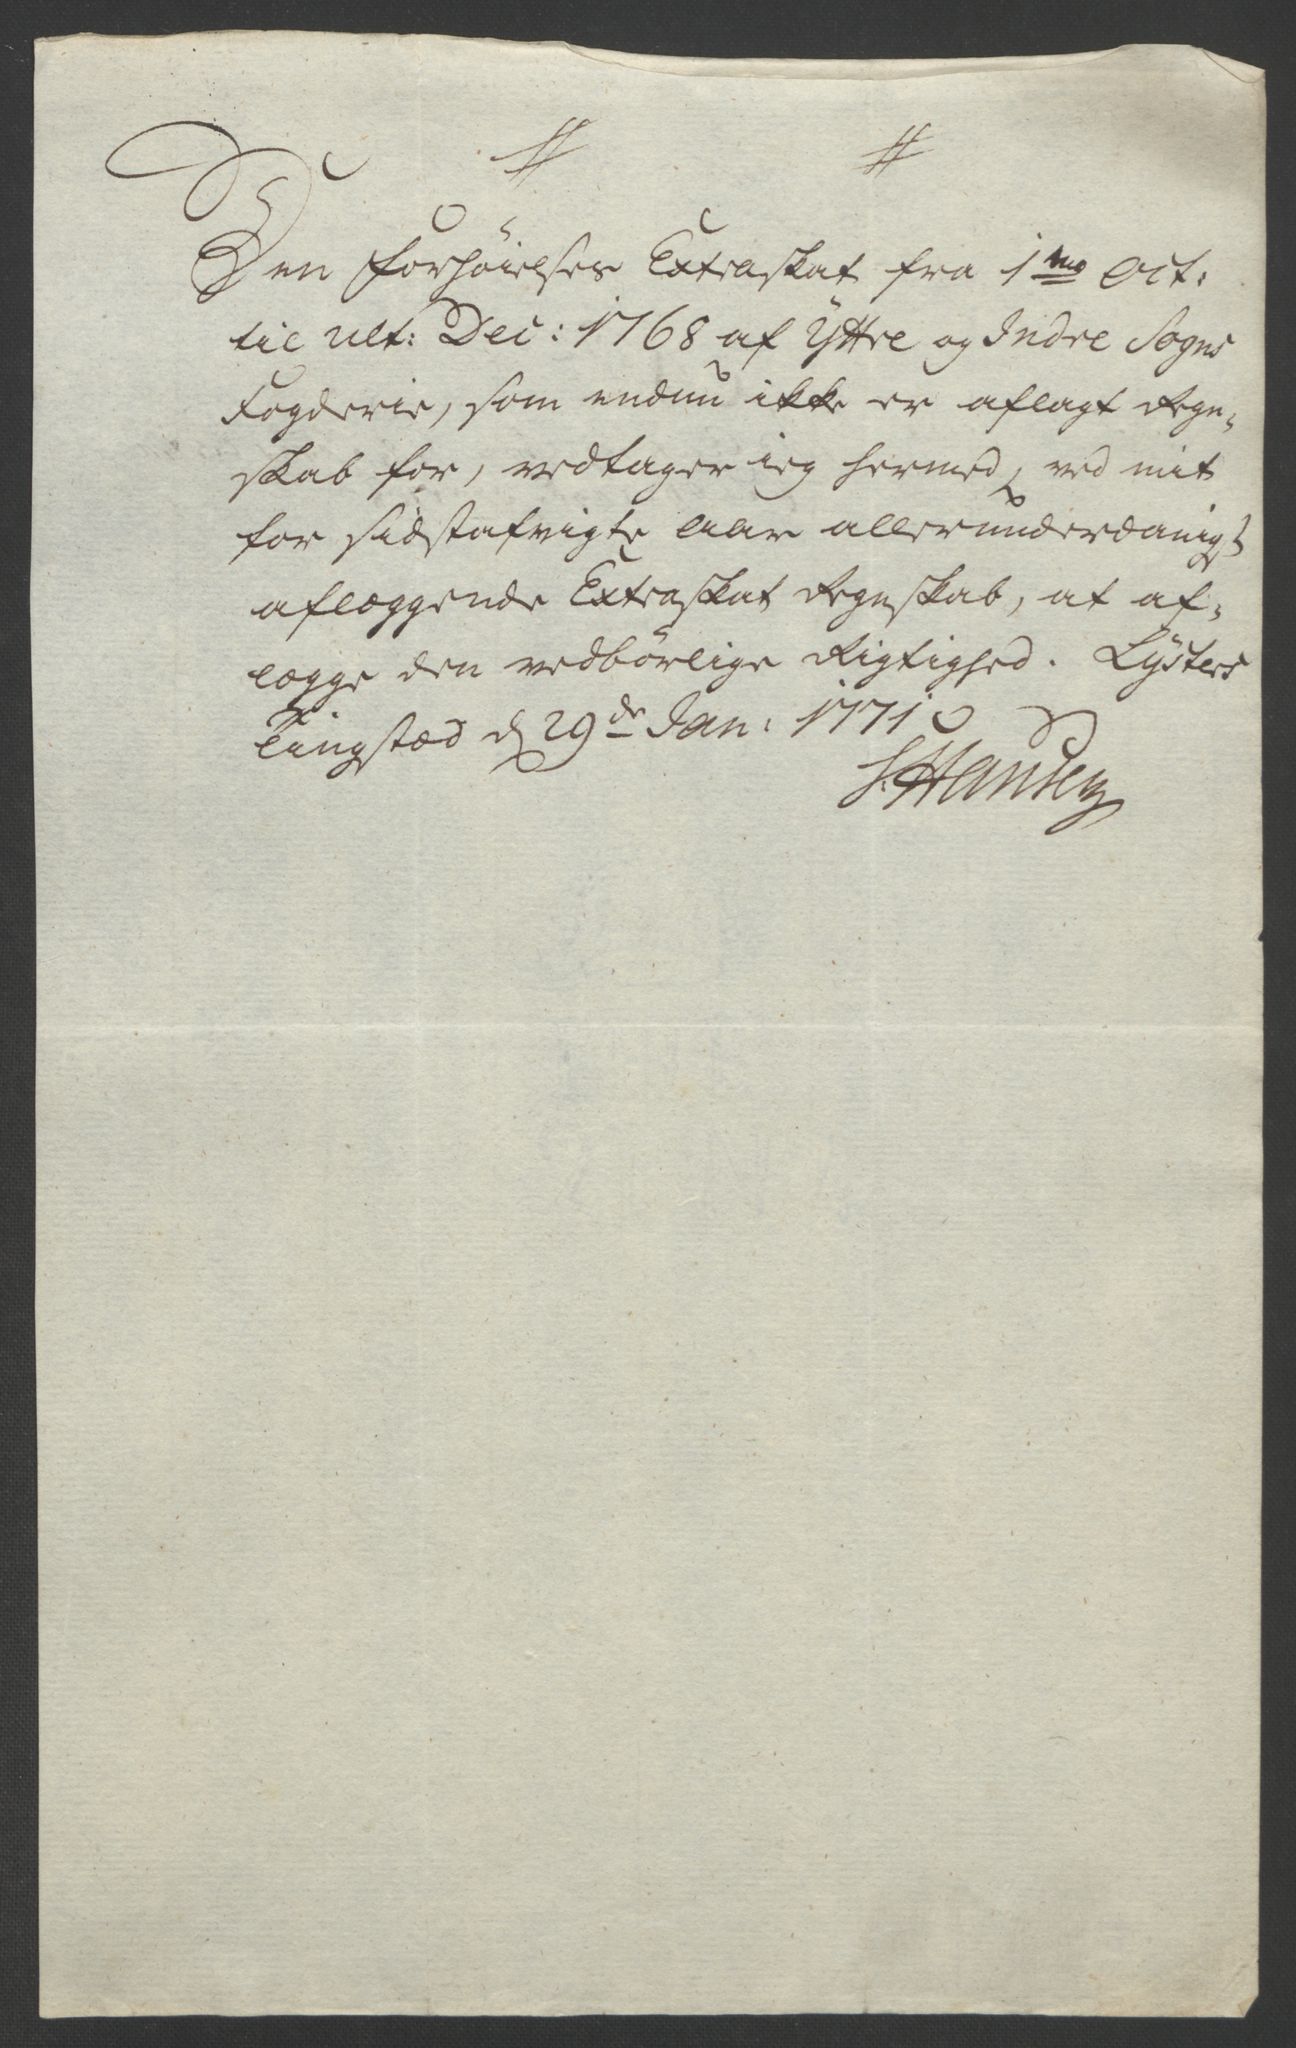 Den Forhøielses Extraskat fra 1mo Oct:
til ult: Dec: 1768 af Yttre og Indre Sogns
Fogderie, som endnu ikke er aflagt Regn-
skab for, vedtager ieg hermed, ved mit
for sidstafvigte Aar allerunderdanigst
aflæggende Extraskat Regnskab, at af-
lægge den vedbørlige Rigtighed. Lysters
Tingstæd d 29de Jan: 1771
Hansen